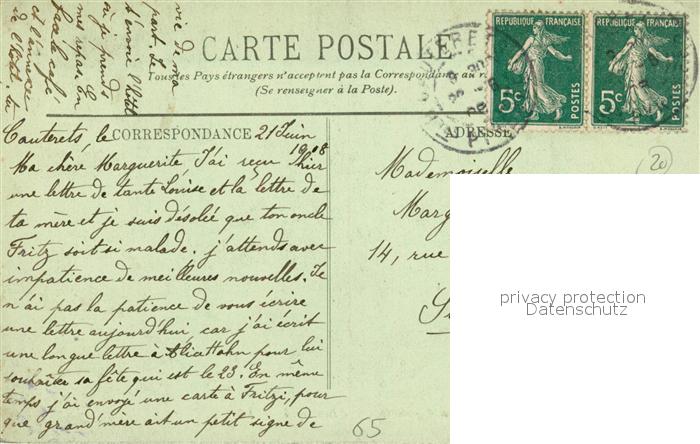 CARTE POSTALE
Tous les Pays étrangers n'acceptent pas la Correspondance au
(Se renseigner à la Poste).
CORRESPONDANCE
ADRESSE
REPUBLIQUE FRANÇAISE
5c
POSTES
REPUBLIQUE FRANÇAISE
5c
POSTES
Cauterets, le 21 Juin
1908
Ma chère Marguerite J'ai reçu hier
une lettre de tante Louise et la lettre de
ta mère et je suis désolée que ton oncle
Fritz soit si malade. j'attends avec
impatience de meilleures nouvelles. Je
n'ai pas la patience de vous écrire
une lettre aujourd'hui car j'ai écrit
une longue lettre à Hahn pour lui
souhaiter sa fête qui est le 23. En même
temps j'ai envoyé une carte à Fritzi, pour
que grand'mère ait un petit signe de
vie de ma
part. Je
t'envoie l'hôtel
où je prends
mes repas. En
face le café
et
de l'hôtel.
Mademoiselle
Marg
14, rue
20
65
privacy protection
Datenschutz